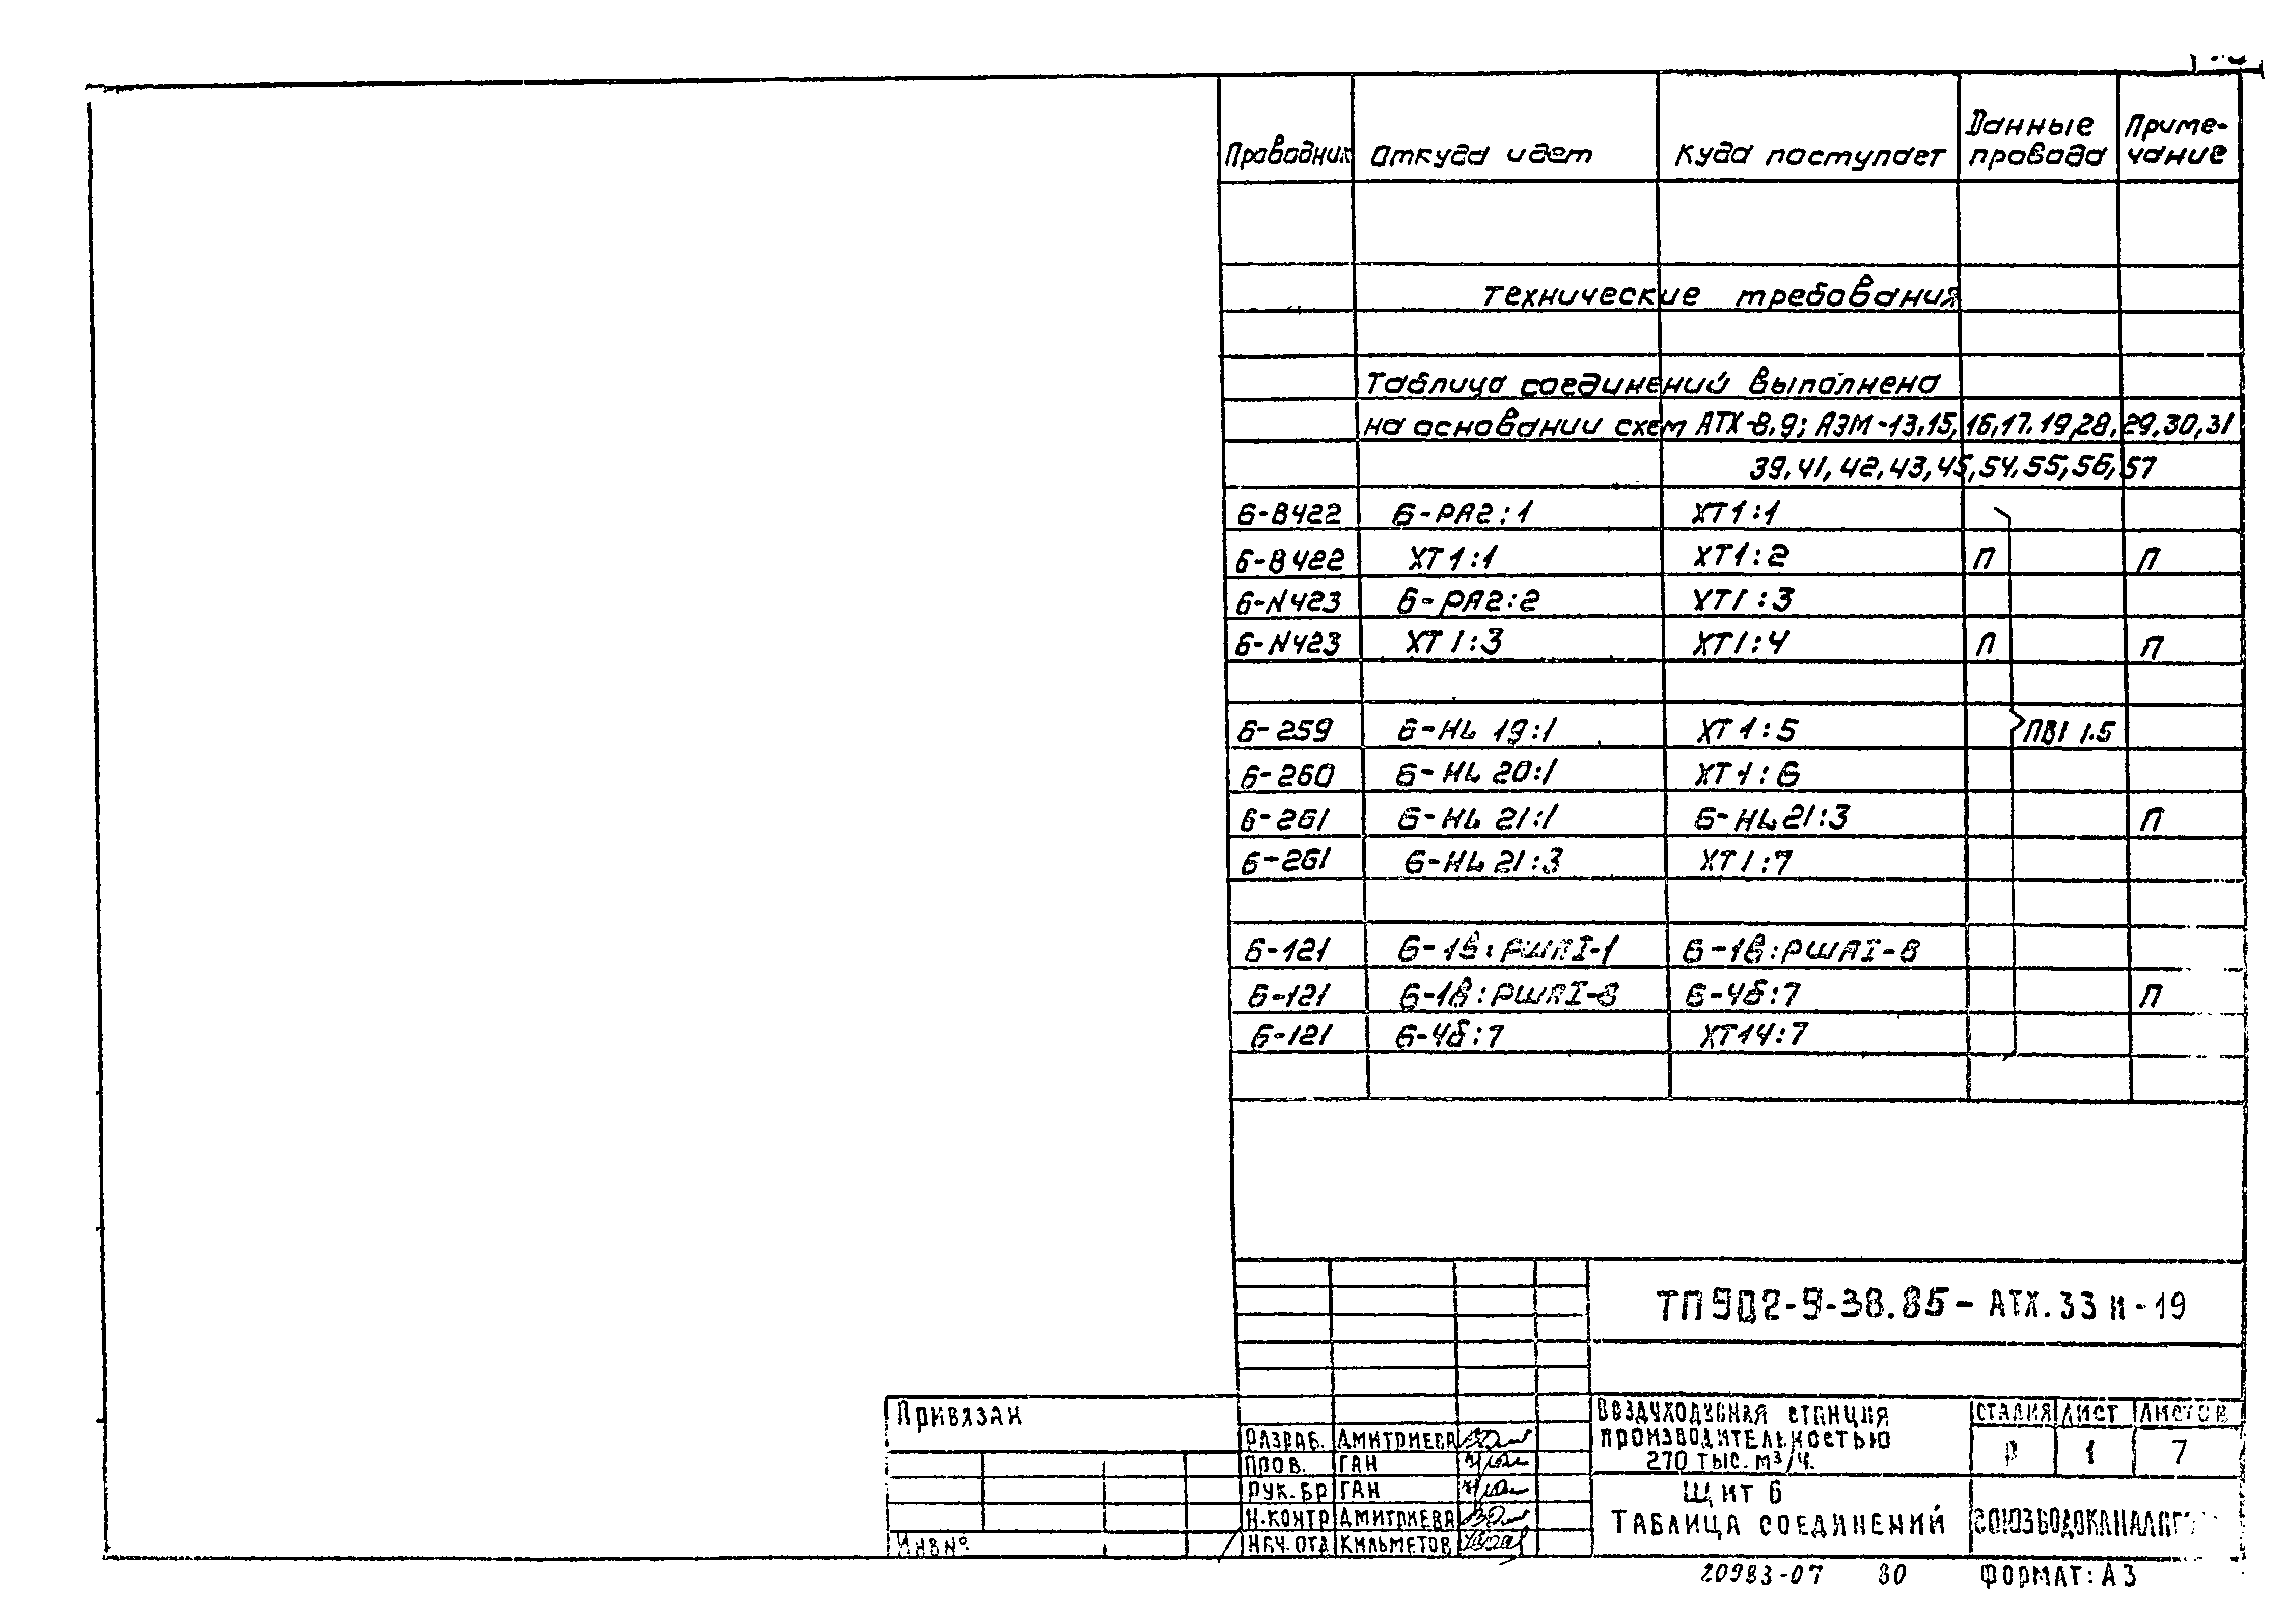 Проводник Откуда идет Куда поступает Данные провода Приме-чание
Технические требования
Таблица соединений выполнена
на основании схем АТХ-8,9; АЭМ-13,15,16,17.19,28,29,30,31
39,41,42,43,45,54,55,56,57
6-В422 6-РА2:1 ХТ1:1
6-В422 ХТ1:1 ХТ1:2 П П
6-N423 6-РА2:2 ХТ1:3
6-N423 ХТ1:3 ХТ1:4 П П
6-259 6-HL 19:1 ХТ1:5 ПВ1 1.5
6-260 6-HL 20:1 ХТ1:6
6-261 6-HL 21:1 6-HL21:3 П
6-261 6-HL 21:3 ХТ1:7
6-121 6-1в:РШАI-1 6-1в:РШАI-8
6-121 6-1в:РШАI-8 6-4б:7 П
6-121 6-4б:7 ХТ14:7
ТП902-9-38.85- АТХ.33 И-19
Привязан
Инв№
Разраб. Дмитриева
Пров. Ган
Рук.бр Ган
Н.контр Дмитриева
Нач.отд Кильметов
Воздуходувная станция
производительностью
270 тыс. м³/ч.
Стадия Лист Листов
Р 1 7
Щит 6
Таблица соединений
20983-07 80 Формат: А3